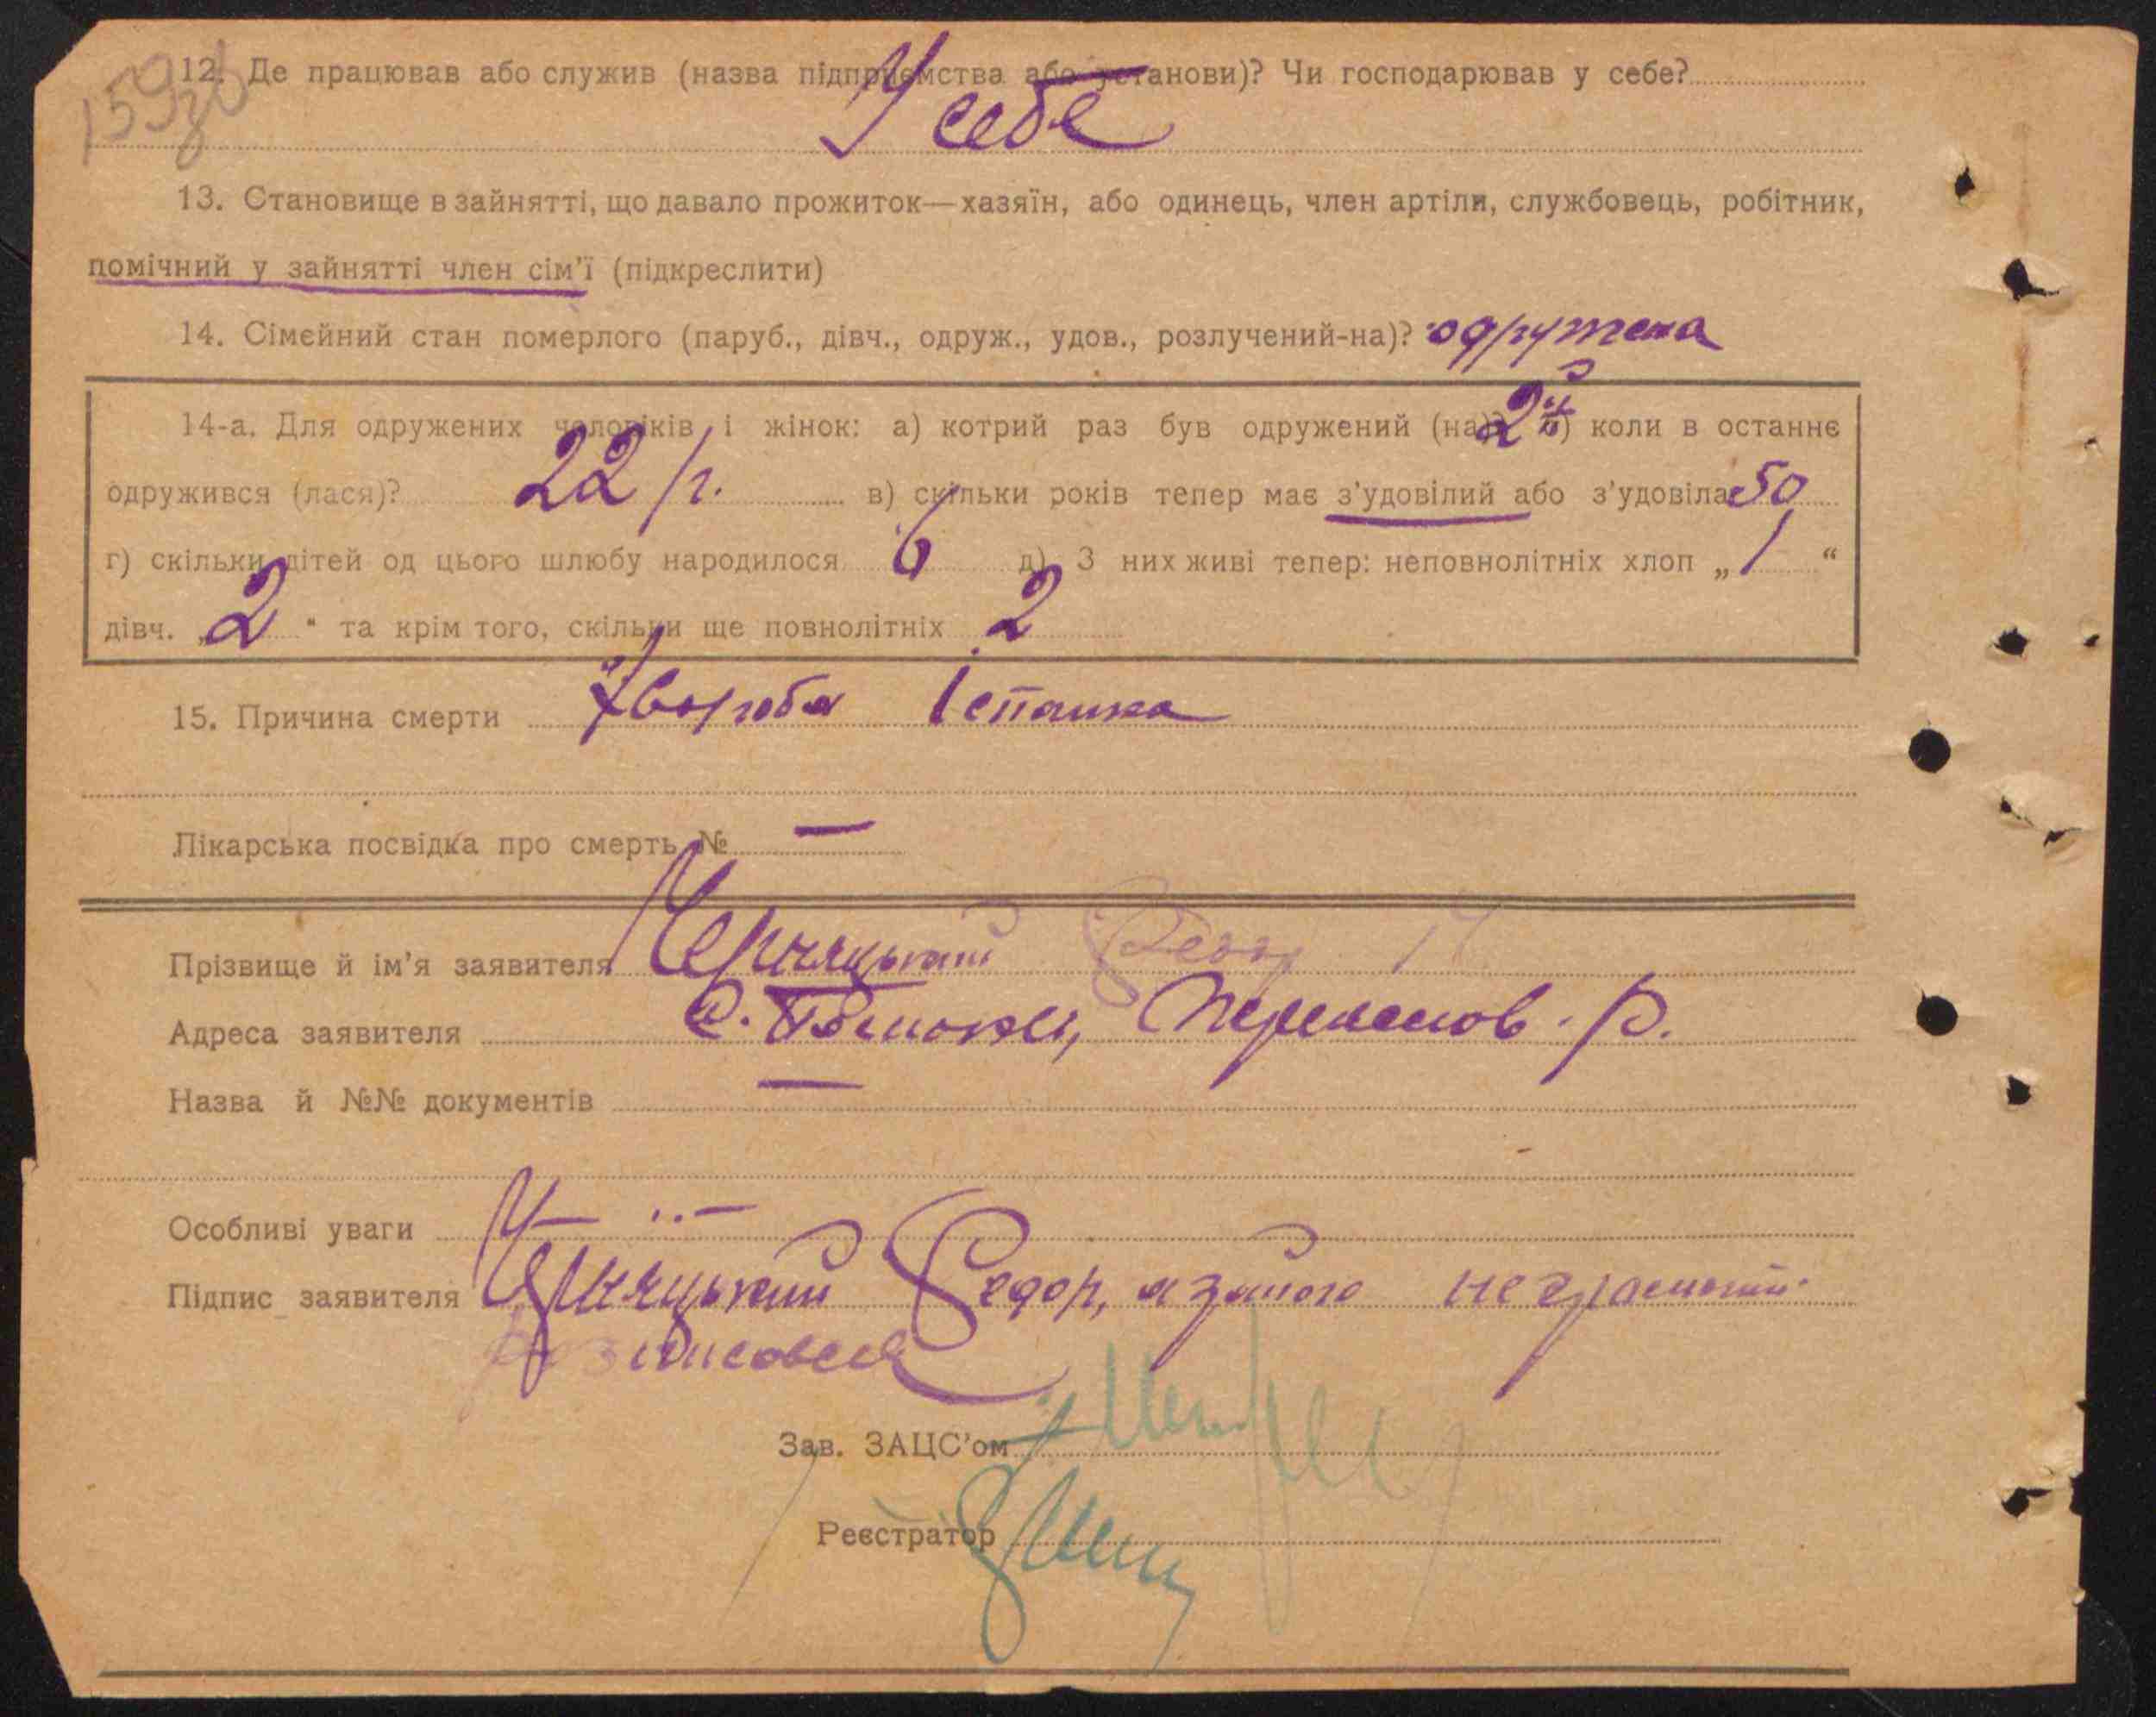 159зв
12. Де працював або служив (назва підприємства або установи)? Чи господарював у себе?
У себе
13. Становище в зайнятті, що давало прожиток—хазяїн, або одинець, член артіли, службовець, робітник,
помічний у зайнятті член сім’ї (підкреслити)
14. Сімейний стан померлого (паруб., дівч., одруж., удов., розлучений-на)? одружена
14-а. Для одружених чоловіків і жінок: а) котрий раз був одружений (на)? 2й б) коли в останнє
одружився (лася)? 22 р. в) скільки років тепер має з’удовілий або з’удовіла 50
г) скільки дітей од цього шлюбу народилося 6 д) З них живі тепер: неповнолітніх хлоп „ 1 “
дівч. „ 2 “ та крім того, скільки ще повнолітніх 2
15. Причина смерти Хвороба
Лікарська посвідка про смерть № —
Прізвище й ім’я заявителя Федор
Адреса заявителя с.
Назва й №№ документів —
Особливі уваги —
Підпис заявителя Федор, а за його неграмотн.
Зав. ЗАЦС’ом
Реєстратор